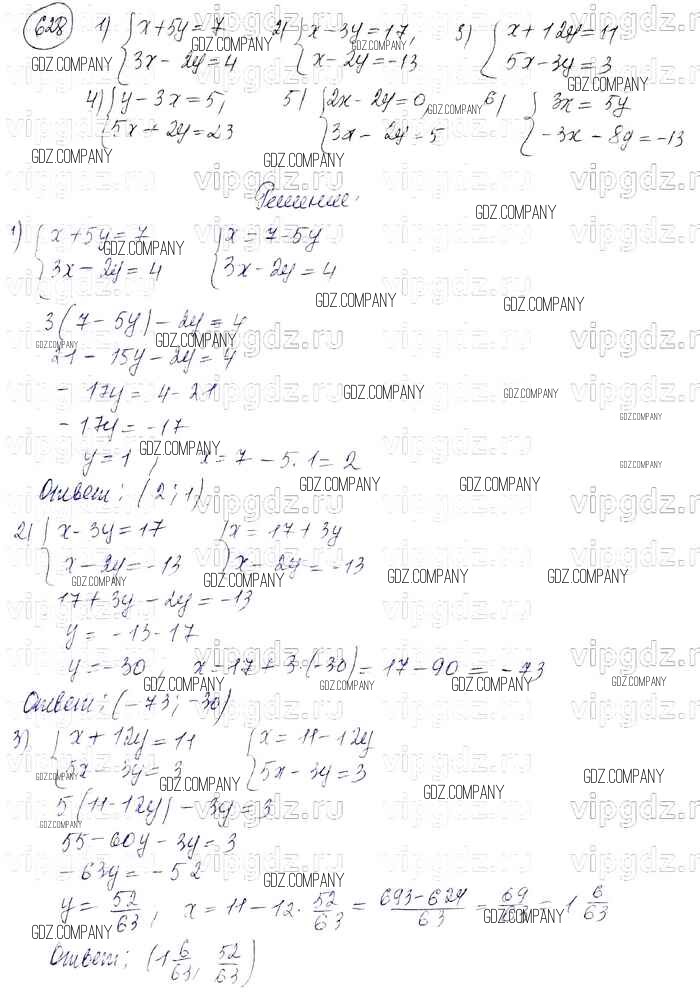 628 1) { x + 5y = 7 2) { x - 3y = 17, 3) { x + 12y = 11
3x - 2y = 4 x - 2y = -13 5x - 3y = 3
4) { y - 3x = 5, 5) { 2x - 2y = 0, 6) { 3x = 5y
5x + 2y = 23 3x - 2y = 5 -3x - 8y = -13
Решение:
1) { x + 5y = 7 { x = 7 - 5y
3x - 2y = 4 3x - 2y = 4
3(7 - 5y) - 2y = 4
21 - 15y - 2y = 4
- 17y = 4 - 21
- 17y = -17
y = 1 , x = 7 - 5·1 = 2
Ответ: (2; 1)
2) { x - 3y = 17 { x = 17 + 3y
x - 2y = -13 x - 2y = -13
17 + 3y - 2y = -13
y = -13 - 17
y = -30, x = 17 + 3·(-30) = 17 - 90 = -73
Ответ: (-73; -30)
3) { x + 12y = 11 { x = 11 - 12y
5x - 3y = 3 5x - 3y = 3
5(11 - 12y) - 3y = 3
55 - 60y - 3y = 3
- 63y = -52
y = 52/63, x = 11 - 12 · 52/63 = 693-624/63 = 69/63 = 1 6/63
Ответ: (1 6/63, 52/63)
GDZ.COMPANY
vipgdz.ru